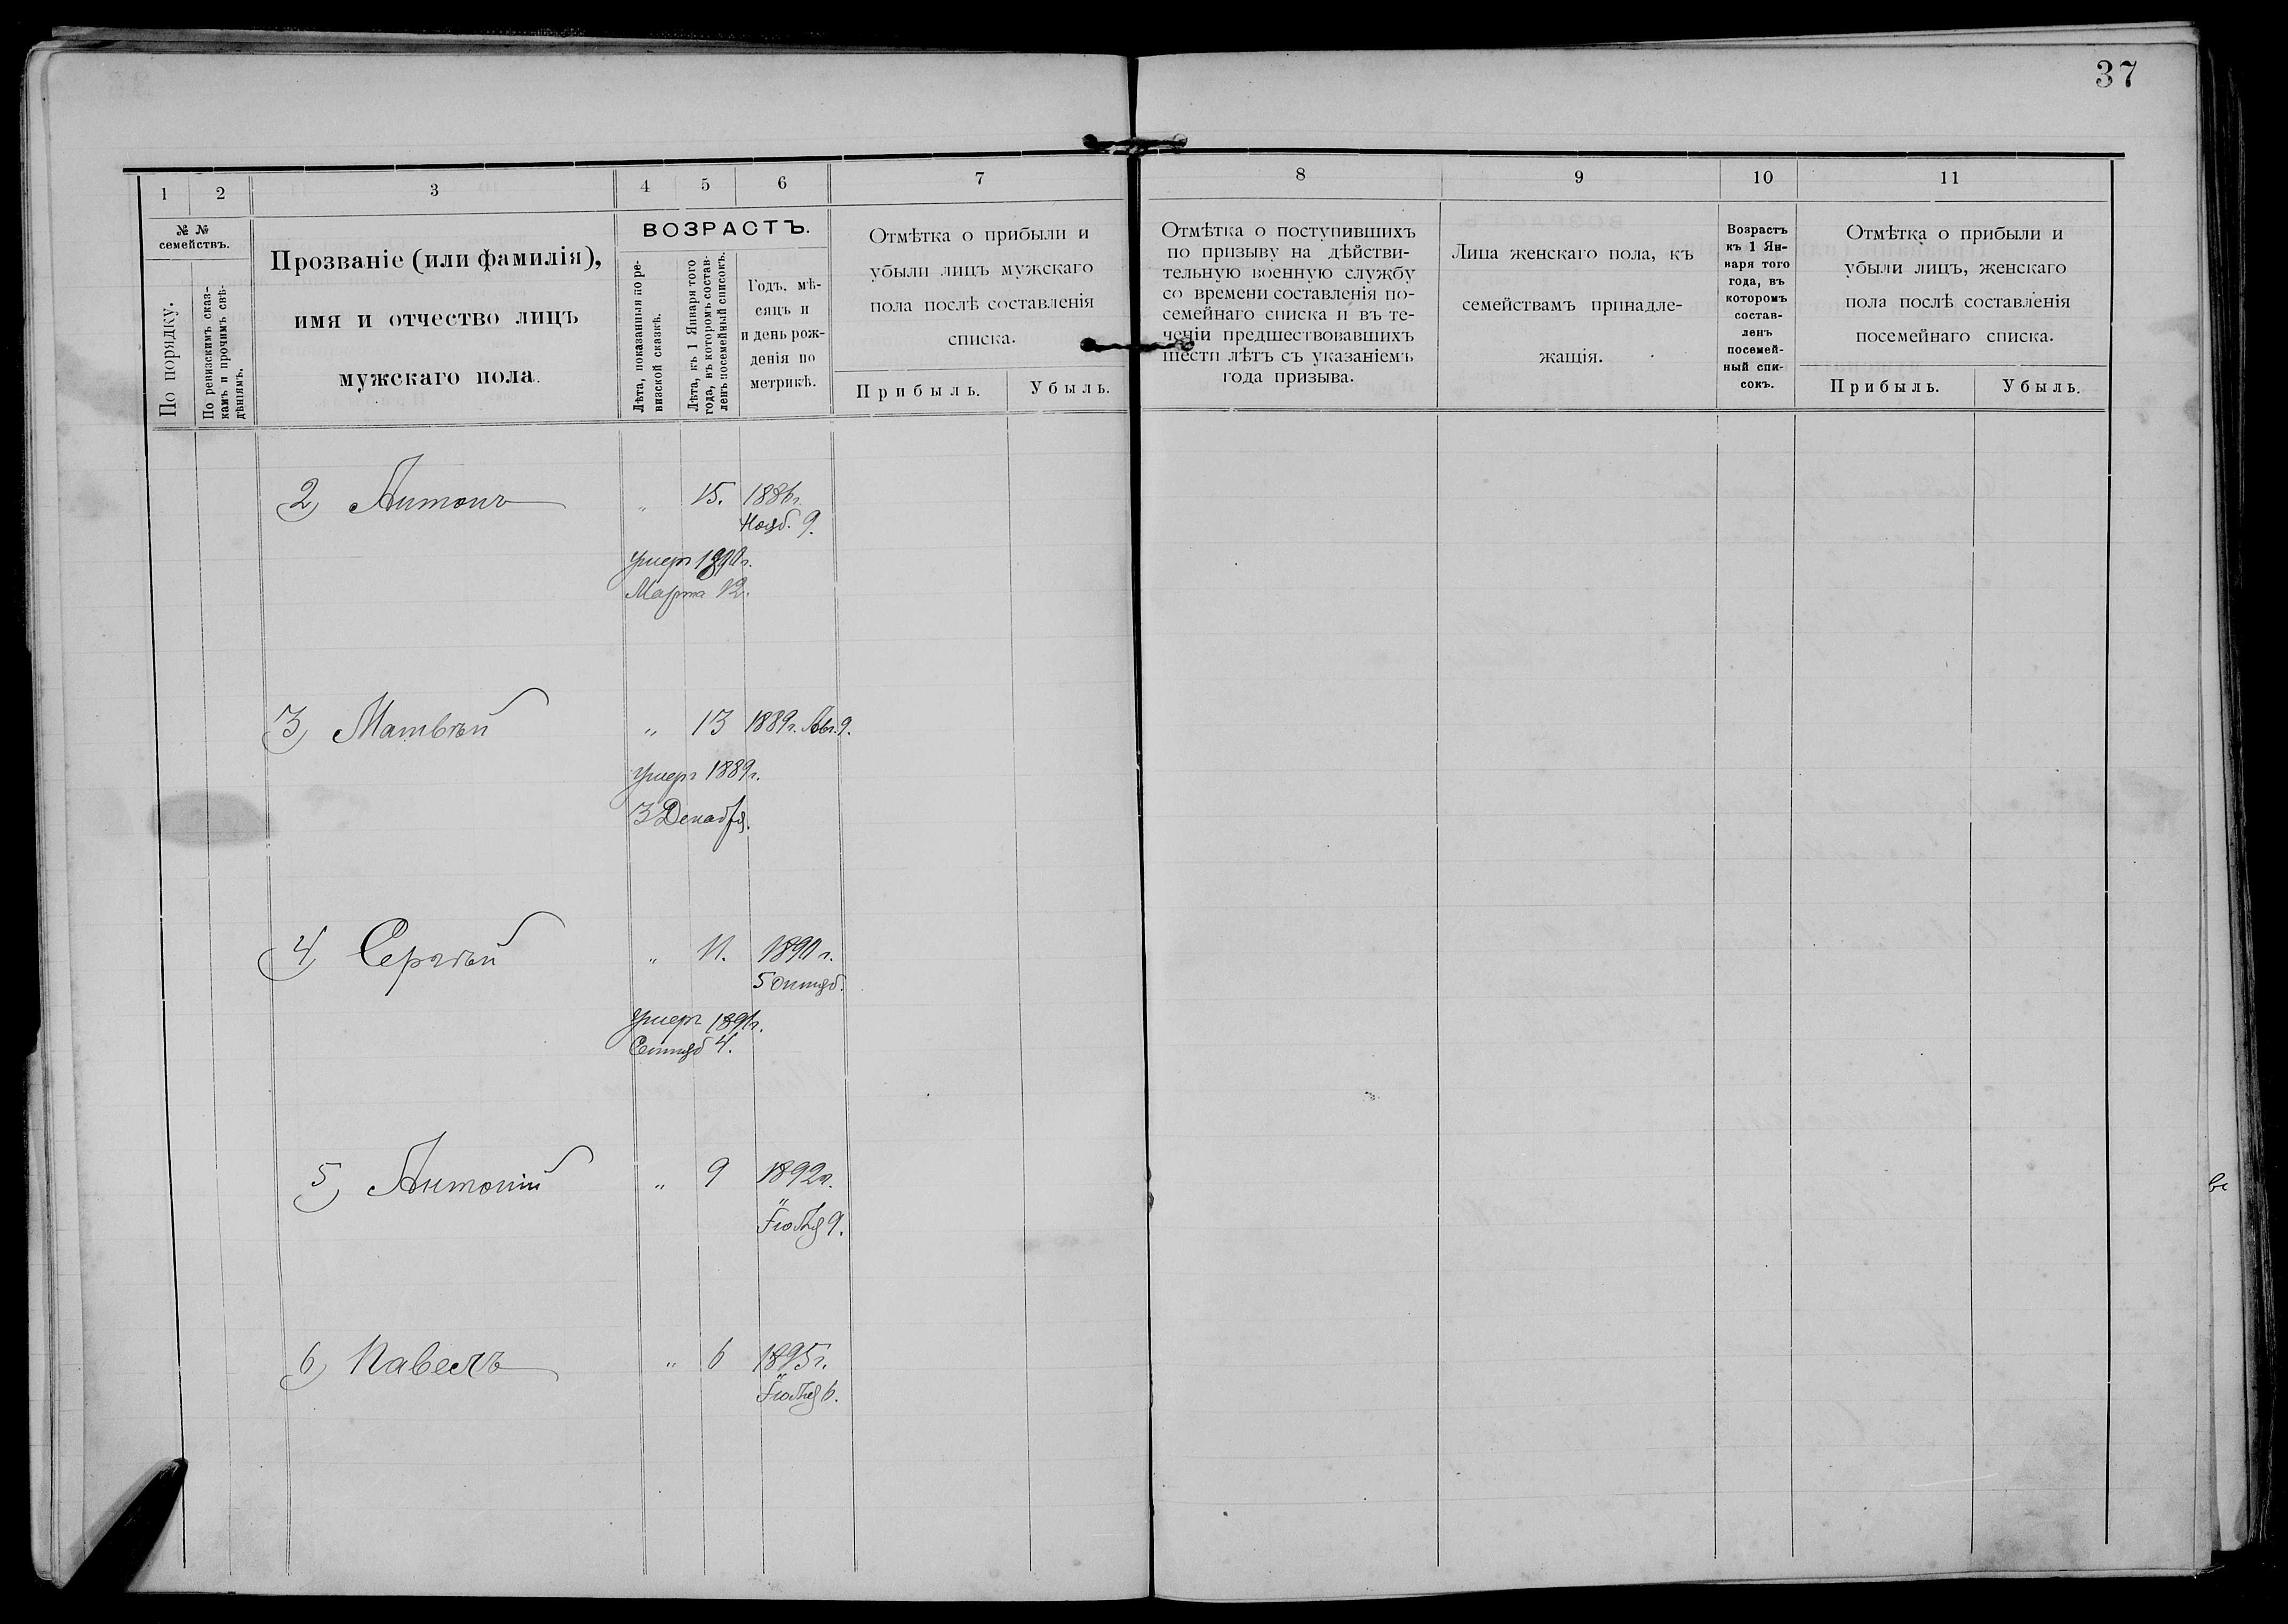 37
1
2
3
4
5
6
7
8
9
10
11
№ №
семействъ.
По порядку.
По ревизскимъ сказ-
камъ и прочимъ свѣ-
дѣніямъ.
Прозваніе (или фамилія),
имя и отчество лицъ
мужскаго пола.
ВОЗРАСТЪ.
Лѣта, показанныя по ре-
визской сказкѣ.
Лѣта, къ 1 Января того
года, въ которомъ состав-
ленъ посемейный списокъ.
Годъ, мѣ-
сяцъ и
и день рож-
денія по
метрикѣ.
Отмѣтка о прибыли и
убыли лицъ мужскаго
пола послѣ составленія
списка.
Прибыль.
Убыль.
Отмѣтка о поступившихъ
по призыву на дѣйстви-
тельную военную службу
со времени составленія по-
семейнаго списка и въ те-
ченіи предшествовавшихъ
шести лѣтъ съ указаніемъ
года призыва.
Лица женскаго пола, къ
семействамъ принадле-
жащія.
Возрастъ
къ 1 Ян-
варя того
года, въ
которомъ
состав-
ленъ
посемей-
ный спи-
сокъ.
Отмѣтка о прибыли и
убыли лицъ, женскаго
пола послѣ составленія
посемейнаго списка.
Прибыль.
Убыль.
2) Антонъ " 15. 1886г.
Нояб. 9.
умеръ г.
Марта 12.
3) Матвѣй " 13 1889г. Авг. 9.
умеръ 1889г.
3 Декабря.
4) Сергѣй " 11. 1890 г.
5 Октяб.
умеръ 1891г.
Сентяб 4.
5) Антоній " 9 1892г.
9.
6) Павелъ " 6 1895г.
6.